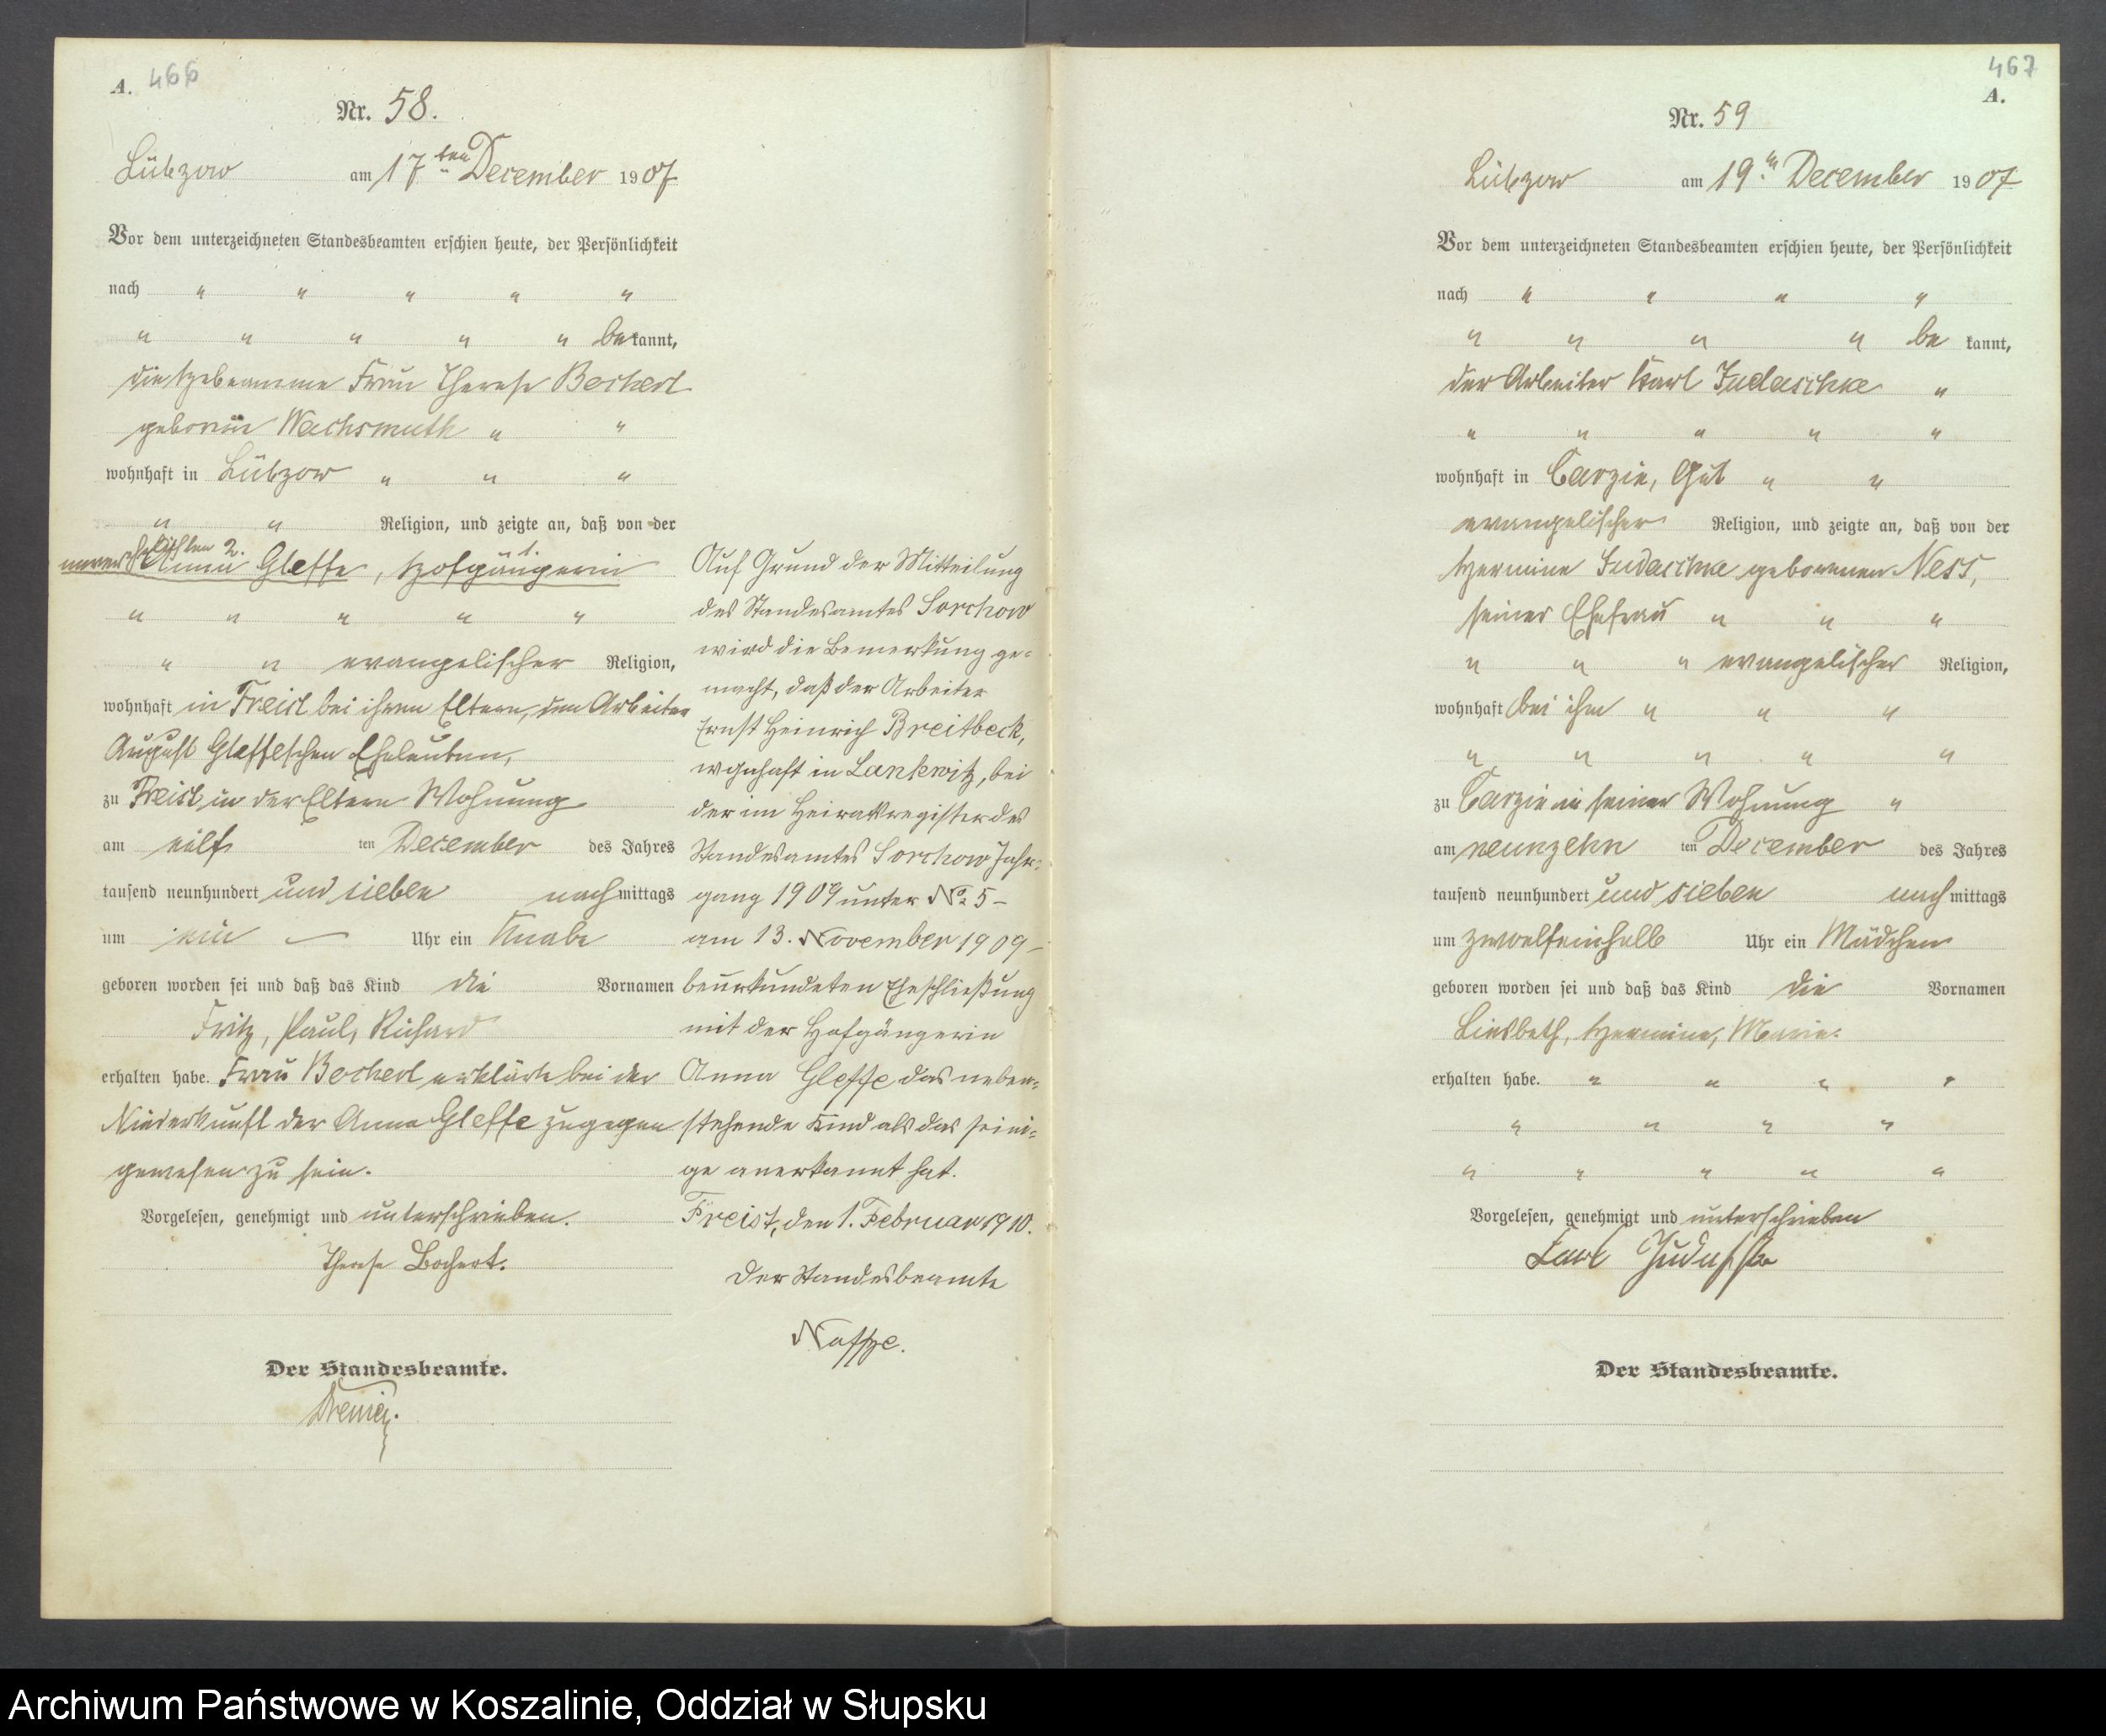 A. 466
Nr. 58.
Lübzow am 17ten December 1907
Vor dem unterzeichneten Standesbeamten erschien heute, der Persönlichkeit
nach " " " " "
" " " " " bekannt,
die Hebeamme Frau Therese Bochert
geborne Wachsmuth " "
wohnhaft in Lübzow " " "
" " Religion, und zeigte an, daß von der
unverehelichten 2. 1.
Anna Gleffe, Hofgängerin
" " " " "
" " evangelischer Religion,
wohnhaft in Freist bei ihren Eltern, den Arbeiter
August Gleffeschen Eheleuten,
zu Freist in der Eltern Wohnung
am eilf ten December des Jahres
tausend neunhundert und sieben nachmittags
um ein — Uhr ein Knabe
geboren worden sei und daß das Kind die Vornamen
Fritz, Paul, Richard
erhalten habe. Frau Bochert erklärte bei der
Niederkunft der Anna Gleffe zugegen
gewesen zu sein.
Vorgelesen, genehmigt und unterschrieben.
Therese Bochert.
Der Standesbeamte.
Auf Grund der Mitteilung
des Standesamtes Sorchow
wird die Bemerkung ge-
macht, daß der Arbeiter
Ernst Heinrich Breitbeck,
wohnhaft in Lankwitz, bei
der im Heiratsregister des
Standesamtes Sorchow Jahr-
gang 1909 unter № 5 –
am 13. November 1909 –
beurkundeten Eheschließung
mit der Hofgängerin
Anna Gleffe das neben-
stehende Kind als das seini-
ge anerkannt hat.
Freist, den 1. Februar 1910.
Der Standesbeamte
467
A.
Nr. 59
Lübzow am 19ten December 1907
Vor dem unterzeichneten Standesbeamten erschien heute, der Persönlichkeit
nach " " " "
" " " " be kannt,
der Arbeiter Karl Judaschke "
" " " " "
wohnhaft in Carzin, Gut " "
evangelischer Religion, und zeigte an, daß von der
Hermine Judaschke geborenen Ness,
seiner Ehefrau " " "
" " " evangelischer Religion,
wohnhaft bei ihm " " "
" " " " "
zu Carzin in seiner Wohnung "
am neunzehn ten December des Jahres
tausend neunhundert und sieben nachmittags
um zwoelfeinhalb Uhr ein Mädchen
geboren worden sei und daß das Kind die Vornamen
Liesbeth, Hermine, Marie.
erhalten habe. " " " "
" " " "
" " " " "
Vorgelesen, genehmigt und unterschrieben
Karl Judaschke
Der Standesbeamte.
Archiwum Państwowe w Koszalinie, Oddział w Słupsku